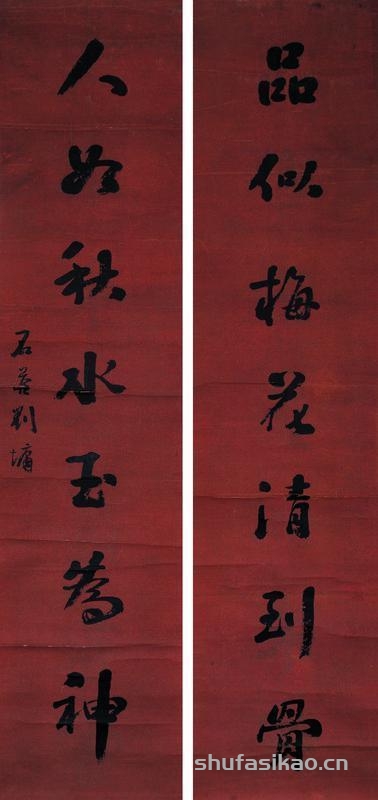 品似梅花清到骨
人如秋水玉為神
石菴劉墉
shufasikao.cn